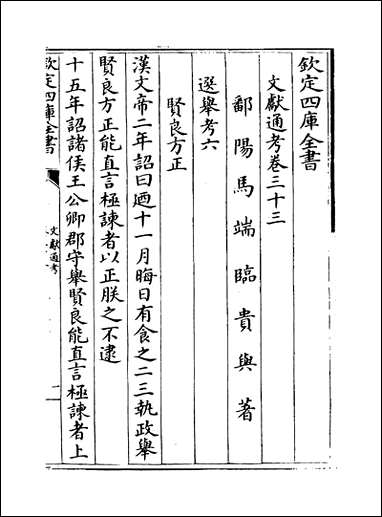 欽定四庫全書
文獻通考卷三十三
鄱陽馬端臨貴與著
選舉考六
賢良方正
漢文帝二年詔曰迺十一月晦日有食之二三執政舉
賢良方正能直言極諫者以正朕之不逮
十五年詔諸侯王公卿郡守舉賢良能直言極諫者上
欽定四庫全書
文獻通考
一